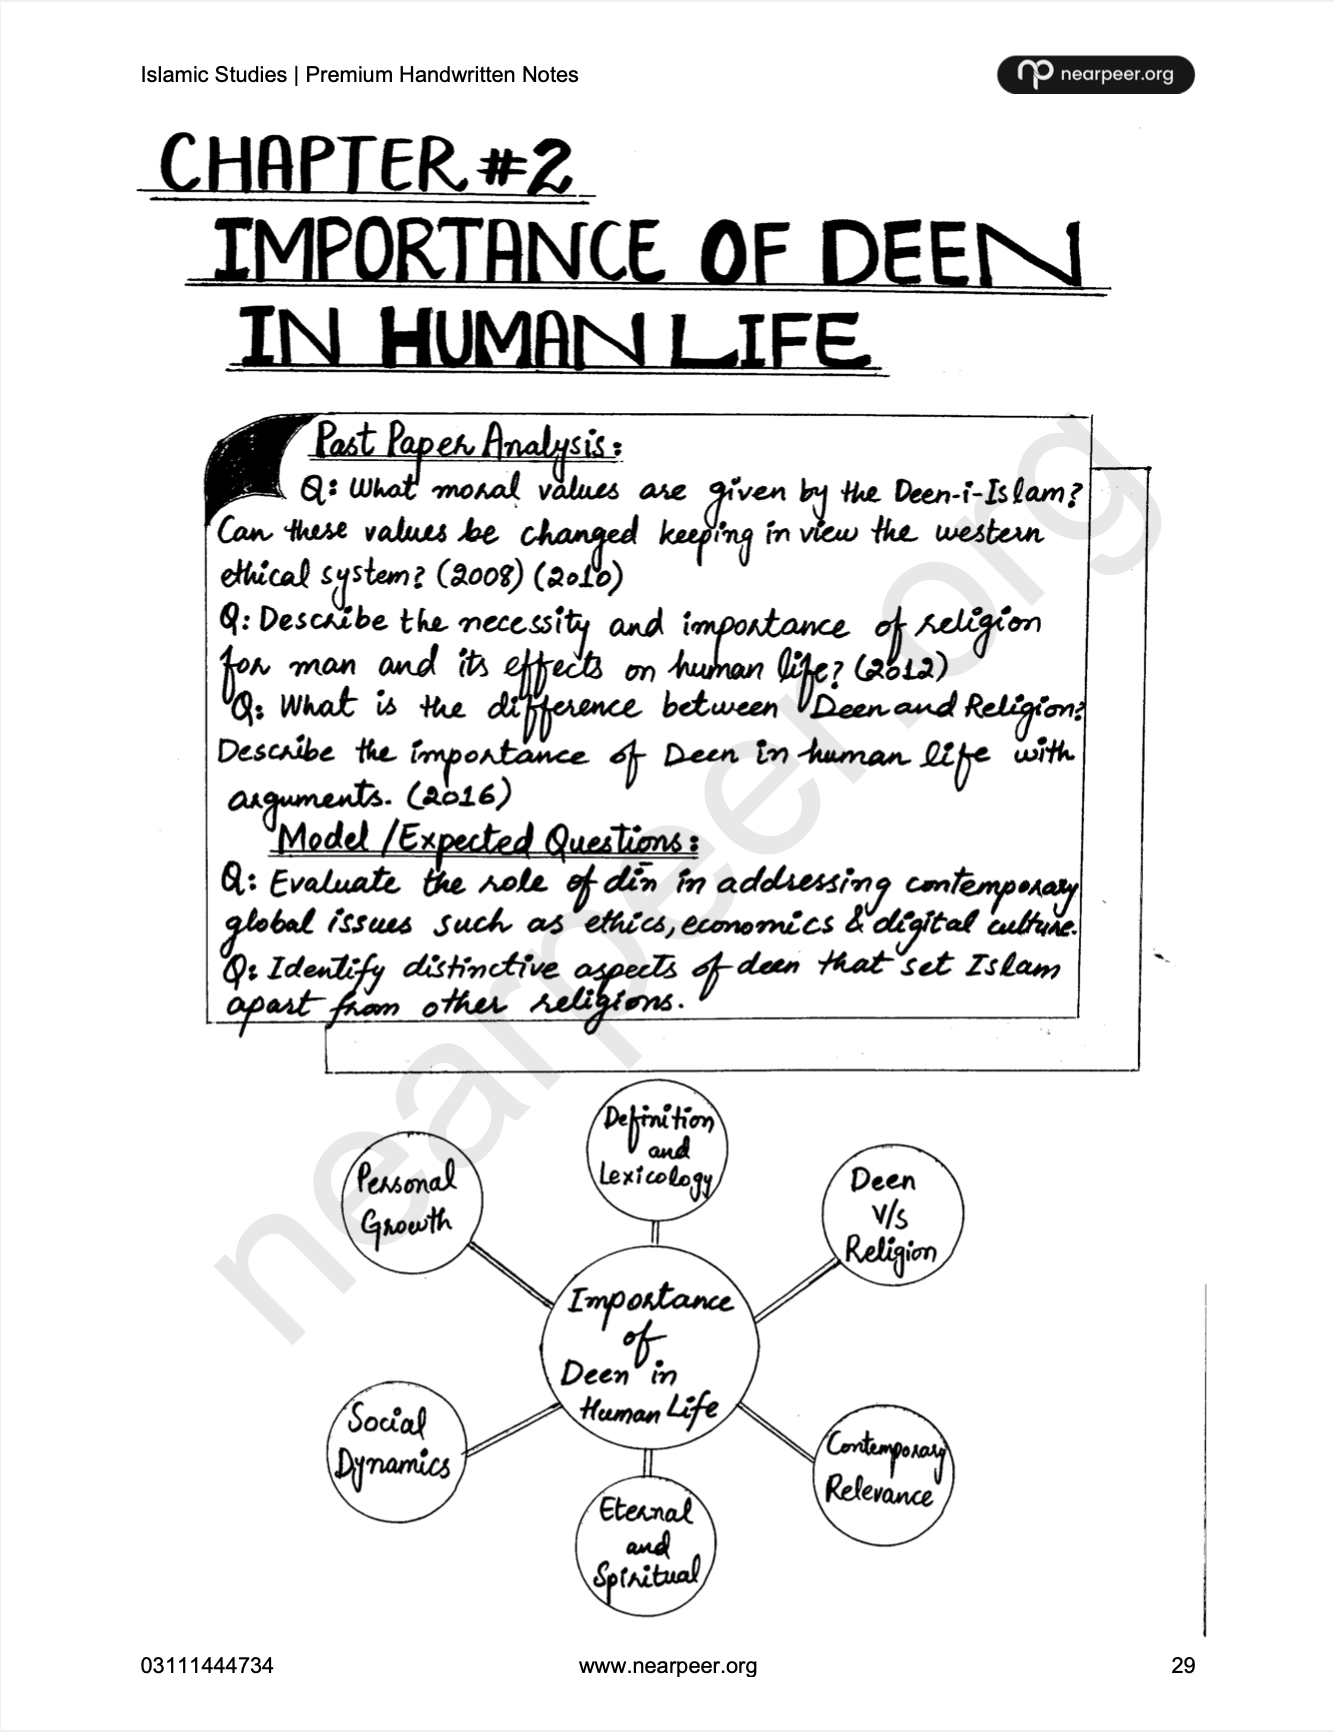 Islamic Studies | Premium Handwritten Notes
nearpeer.org
CHAPTER #2
IMPORTANCE OF DEEN
IN HUMAN LIFE
Past Paper Analysis:
Q: What moral values are given by the Deen-i-Islam?
Can these values be changed keeping in view the western
ethical system? (2008) (2010)
Q: Describe the necessity and importance of religion
for man and its effects on human life? (2012)
Q: What is the difference between Deen and Religion?
Describe the importance of Deen in human life with
arguments. (2016)
Model / Expected Questions:
Q: Evaluate the role of dīn in addressing contemporary
global issues such as ethics, economics & digital culture.
Q: Identify distinctive aspects of deen that set Islam
apart from other religions.
Definition
and
Lexicology
Personal
Growth
Deen
V/s
Religion
Importance
of
Deen in
Human Life
Social
Dynamics
Contemporary
Relevance
Eternal
and
Spiritual
nearpeer.org
03111444734
www.nearpeer.org
29